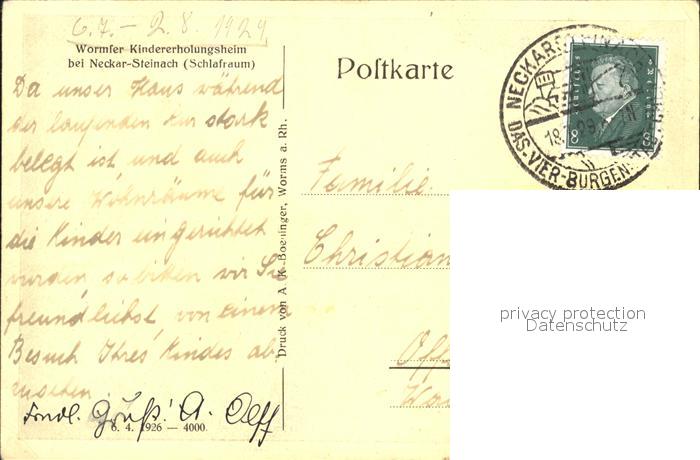 6.7. – 2.8. 1929
Wormser Kindererholungsheim
bei Neckar-Steinach (Schlafraum)
Da unser Haus während
der laufenden Kur stark
belegt ist und auch
unsere Wohnräume für
die Kinder eingerichtet
wurden so bitten wir Sie
freundlichst, von einem
Besuch Ihres Kindes ab-
zusehen.
Frndl. Gruß! A.
6. 4. 1926 — 4000.
Druck von A. K. Boeninger, Worms a. Rh.
Postkarte
NECKARSTEINACH
DAS-VIER-BURGEN-
18.
8 8
Familie
Christian
Off
privacy protection
Datenschutz